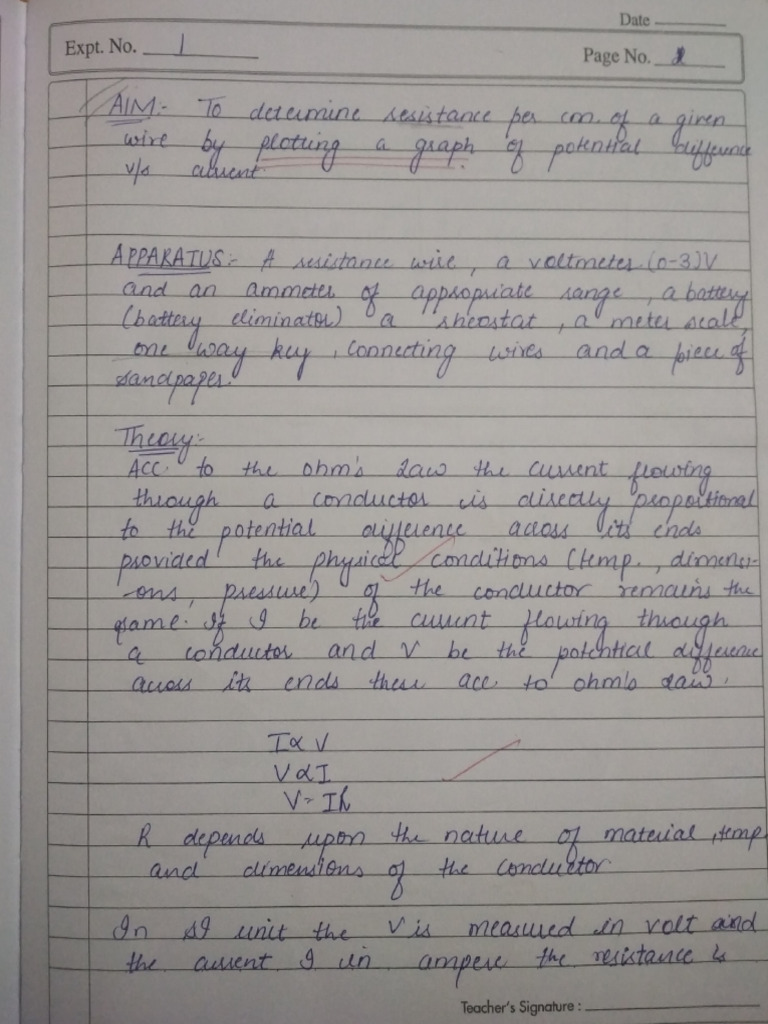 Date
Expt. No. 1
Page No. 2
AIM:- To determine resistance per cm. of a given
wire by plotting a graph of potential difference
v/s current.
APPARATUS:- A resistance wire, a voltmeter (0-3)V
and an ammeter of appropriate range, a battery
(battery eliminator) a rheostat, a meter scale,
one way key, connecting wires and a piece of
sandpaper.
Theory:-
ACC. to the ohm's Law the current flowing
through a conductor is directly proportional
to the potential difference across its ends
provided the physical conditions (temp., dimensi-
-ons, pressure) of the conductor remains the
same. If I be the current flowing through
a conductor and V be the potential difference
across its ends then acc. to ohm's Law.
I∝ V
V∝I
V= IR
R depends upon the nature of material, temp
and dimensions of the conductor
In SI unit the V is measured in volt and
the current I in ampere the resistance is
Teacher's Signature :